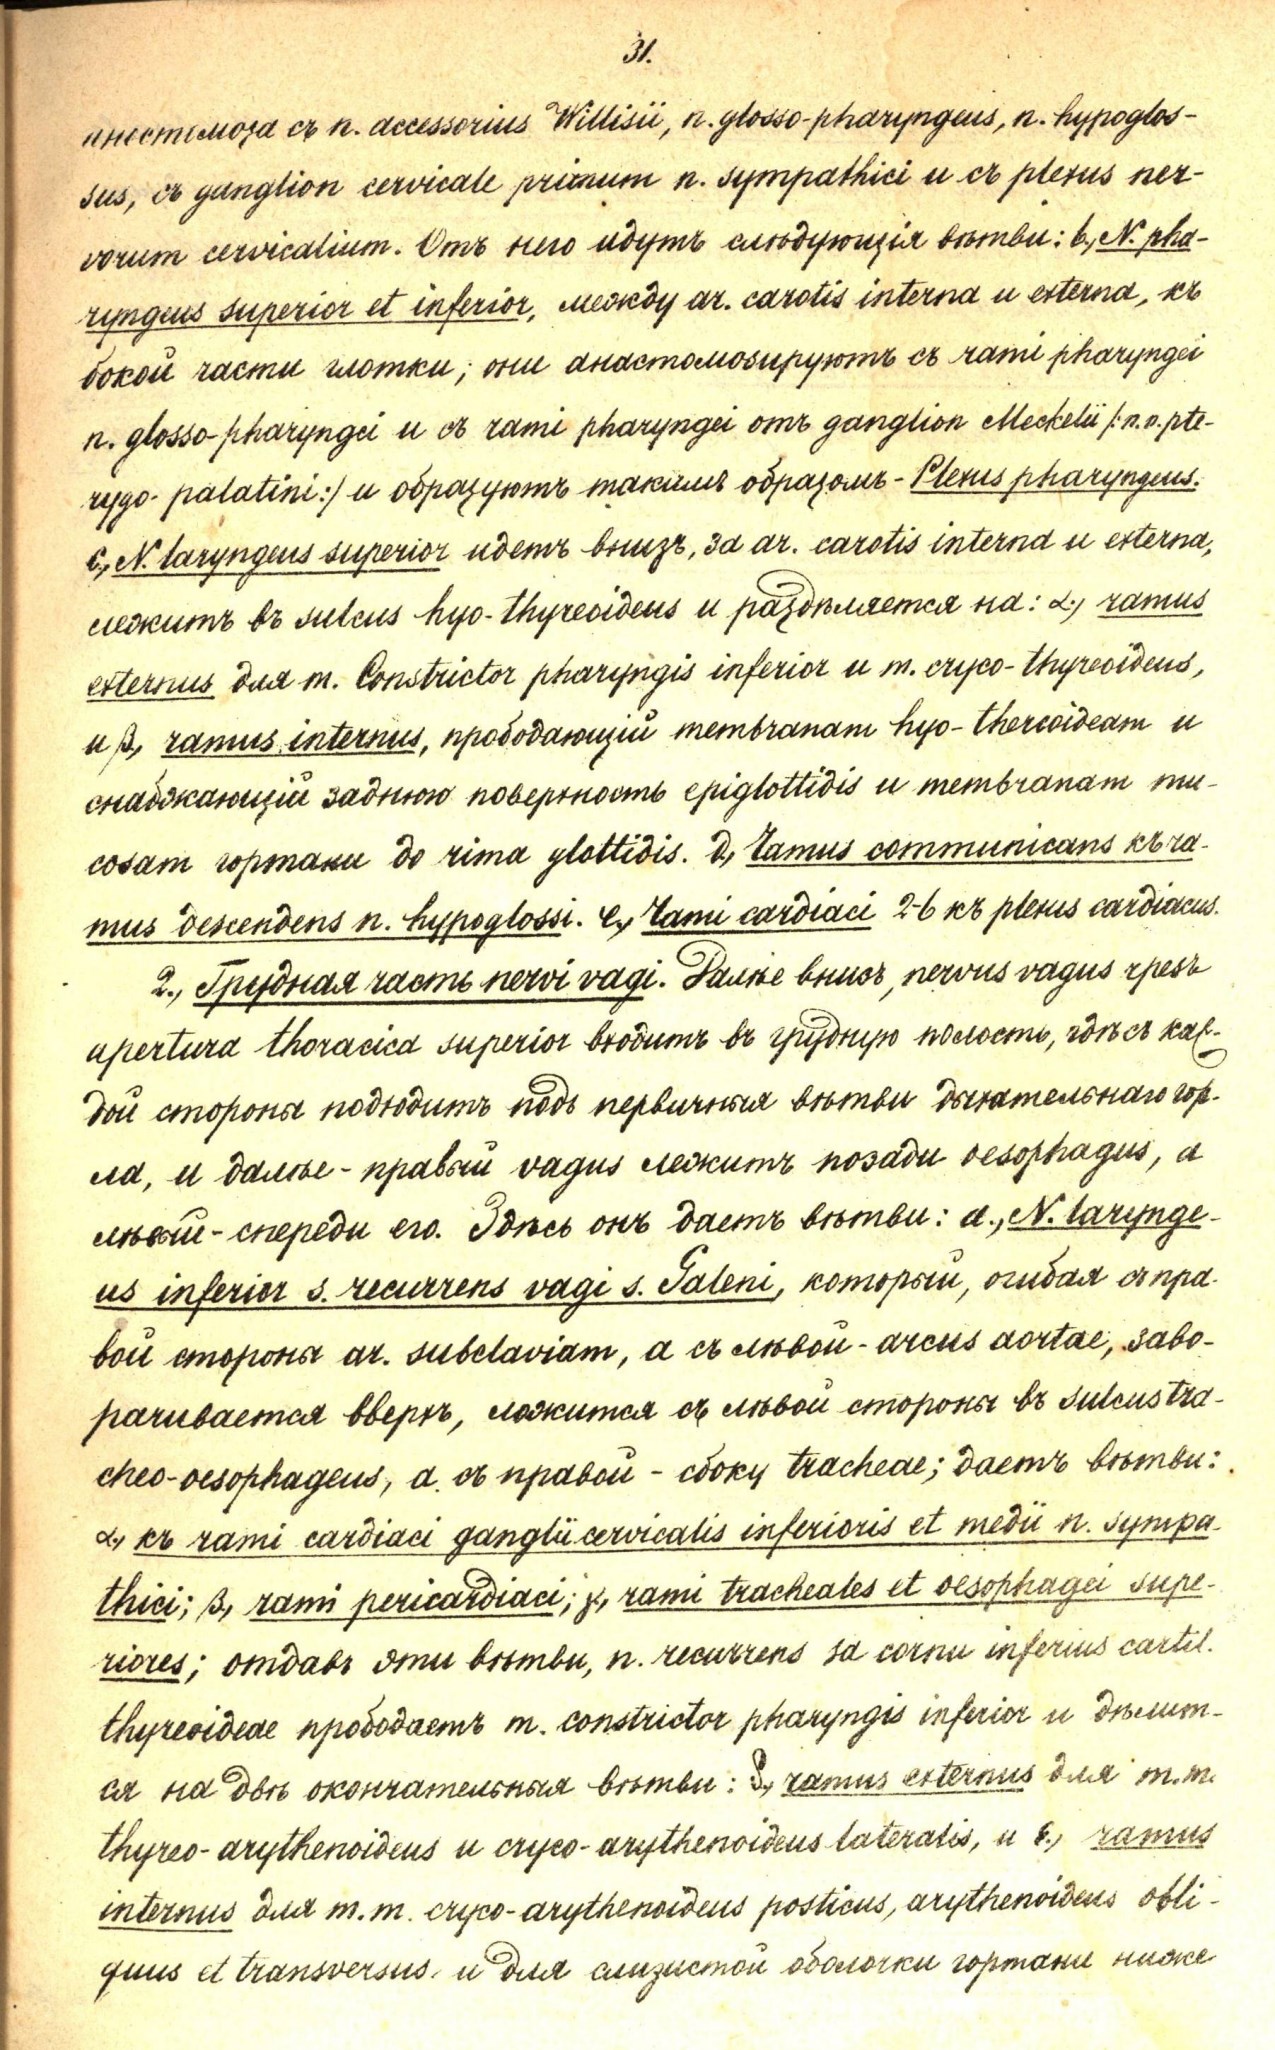 31.
анастомоза съ n. accessorius Willisii, n. glosso-pharyngeus, n. hypoglos-
sus, съ ganglion cervicale primum n. sympathici и съ plexus ner-
vorum cervicalium. Отъ него идутъ слѣдующія вѣтви: b., N. pha-
ryngeus superior et inferior, между ar. carotis interna и externa, къ
бокой части глотки; они анастомозируютъ съ rami pharyngei
n. glosso-pharyngei и съ rami pharyngei отъ ganglion Meckelii /:n.n. pte-
rygo-palatini:/ и образуютъ такимъ образомъ - Plexus pharyngeus.
c., N. laryngeus superior идетъ внизъ, за ar. carotis interna и externa,
лежитъ въ sulcus hyo-thyreoideus и раздѣляется на: α., ramus
externus для m. Constrictor pharyngis inferior и m. cryco-thyreoideus,
и β., ramus internus, прободающій membranam hyo-thereoideam и
снабжающій заднюю поверхность epiglottidis и membranam mu-
cosam гортани до rima glottidis. d., Ramus communicans къ ra-
mus descendens n. hypoglossi. e., Rami cardiaci 2-6 къ plexus cardiacus.
2., Грудная часть nervi vagi. Далѣе внизъ, nervus vagus чрезъ
apertura thoracica superior входитъ въ грудную полость, гдѣ съ каж-
дой стороны подходитъ подъ первичныя вѣтви дыхательнаго гор-
ла, и далѣе - правый vagus лежитъ позади oesophagus, а
лѣвый - спереди его. Здѣсь онъ даетъ вѣтви: a., N. larynge-
us inferior s. recurrens vagi s. Galeni, который, огибая съ пра-
вой стороны ar. subclaviam, а съ лѣвой - arcus aortae, заво-
рачивается вверхъ, ложится съ лѣвой стороны въ sulcus tra-
cheo-oesophageus, а съ правой - сбоку tracheae; даетъ вѣтви:
α., къ rami cardiaci ganglii cervicalis inferioris et medii n. sympa-
thici; β., rami pericardiaci; γ., rami tracheales et oesophagei supe-
riores; отдавъ эти вѣтви, n. recurrens за cornu inferius cartil.
thyreoideae прободаетъ m. constrictor pharyngis inferior и дѣлит-
ся на двѣ окончательныя вѣтви: δ., ramus externus для m.m.
thyreo-arythenoideus и cryco-arythenoideus lateralis, и ε., ramus
internus для m.m. cryco-arythenoideus posticus, arythenoideus obli-
quus et transversus и для слизистой оболочки гортани ниже